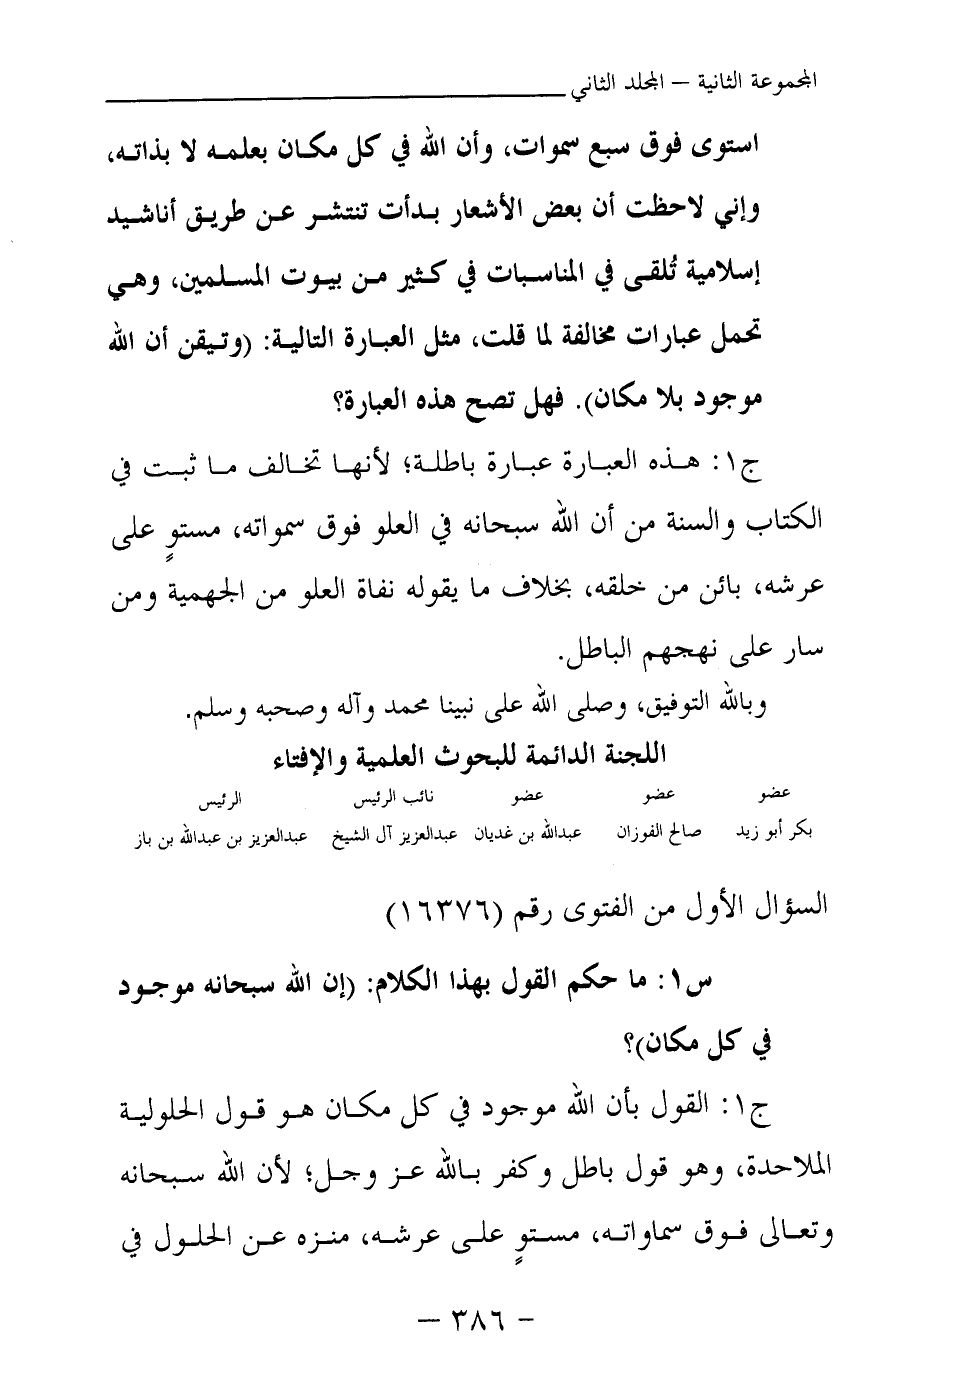 المجموعة الثانية – المجلد الثاني
استوى فوق سبع سموات، وأن الله في كل مكان بعلمه لا بذاته،
وإني لاحظت أن بعض الأشعار بدأت تنتشر عن طريق أناشيد
إسلامية تُلقى في المناسبات في كثير من بيوت المسلمين، وهي
تحمل عبارات مخالفة لما قلت، مثل العبارة التالية: (وتيقن أن الله
موجود بلا مكان). فهل تصح هذه العبارة؟
ج١: هذه العبارة عبارة باطلة؛ لأنها تخالف ما ثبت في
الكتاب والسنة من أن الله سبحانه في العلو فوق سمواته، مستوٍ على
عرشه، بائن من خلقه، بخلاف ما يقوله نفاة العلو من الجهمية ومن
سار على نهجهم الباطل.
وبالله التوفيق، وصلى الله على نبينا محمد وآله وصحبه وسلم.
اللجنة الدائمة للبحوث العلمية والإفتاء
عضو عضو عضو نائب الرئيس الرئيس
بكر أبو زيد صالح الفوزان عبدالله بن غديان عبدالعزيز آل الشيخ عبدالعزيز بن عبدالله بن باز
السؤال الأول من الفتوى رقم (١٦٣٧٦)
س١: ما حكم القول بهذا الكلام: (إن الله سبحانه موجود
في كل مكان)؟
ج١: القول بأن الله موجود في كل مكان هو قول الحلولية
الملاحدة، وهو قول باطل وكفر بالله عز وجل؛ لأن الله سبحانه
وتعالى فوق سماواته، مستوٍ على عرشه، منزه عن الحلول في
– ٣٨٦ –